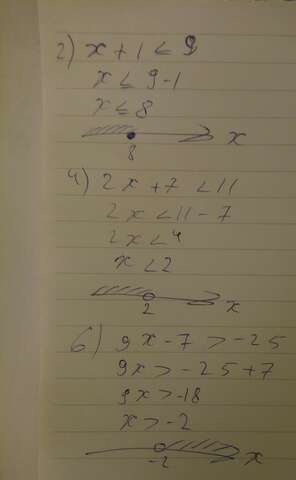 2) x + 1 ≤ 9
x ≤ 9-1
x ≤ 8
8 x
4) 2x +7 < 11
2x < 11 - 7
2x < 4
x < 2
2 x
6) 9x - 7 > -25
9x > -25 +7
9x > -18
x > -2
-2 x